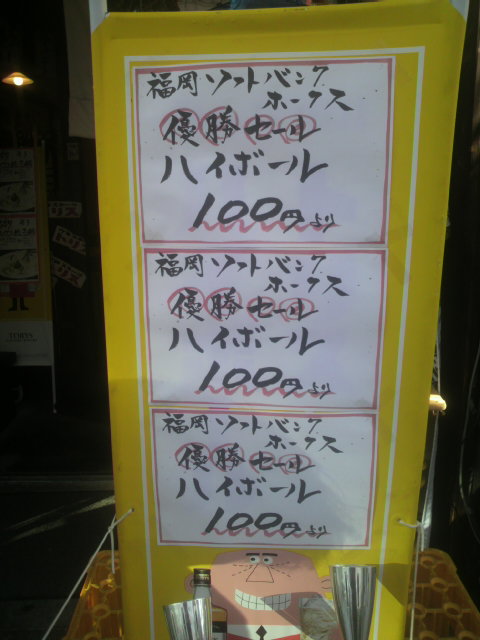 福岡ソフトバンク
ホークス
優勝セール
ハイボール
100円より
福岡ソフトバンク
ホークス
優勝セール
ハイボール
100円より
福岡ソフトバンク
ホークス
優勝セール
ハイボール
100円より
TORYS